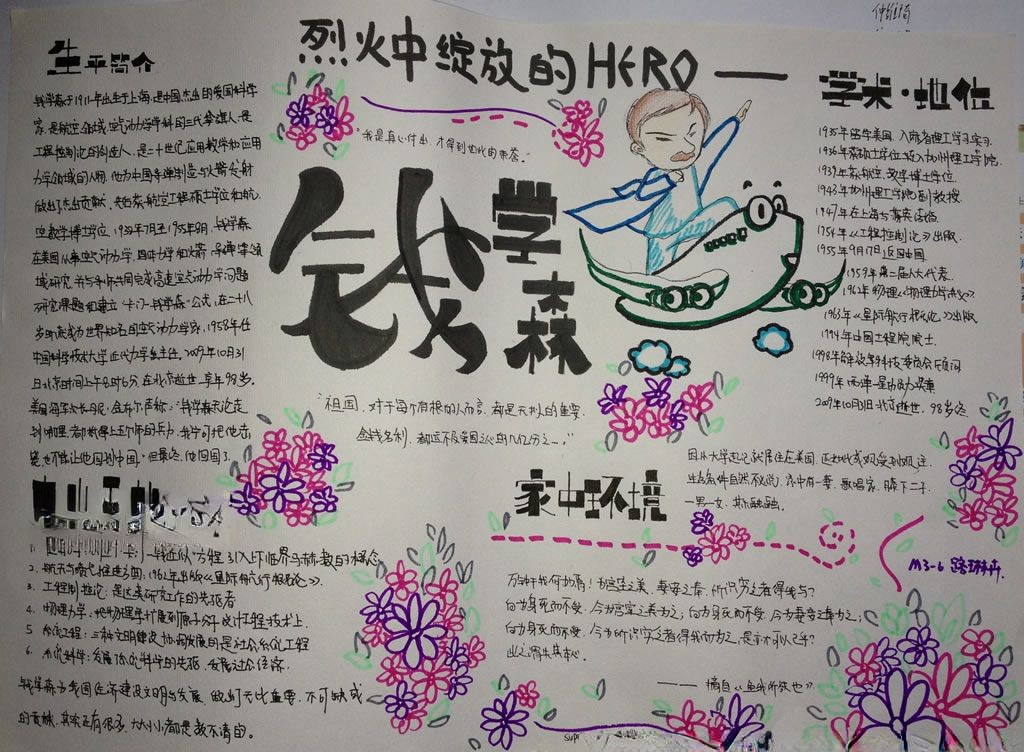 烈火中绽放的HERO——
生平简介
钱学森于1911年出生于上海,是中国杰出的爱国科学
家,是航空领域,空气动力学学科的三代挚旗人,是
工程控制论的创造人,是二十世纪应用数学和应用
力学领域的人物,他为中国导弹制造与火箭发射
做出了杰出贡献,
空数学博士学位,
在美国从事空气动力学、固体力学和火箭、导弹等领
域研究,并与导师共同完成高速空气动力学问题
研究课题和建立"卡门-钱学森"公式,在二十八
岁时就成为世界知名的空气动力学家,1958年任
中国科学技术大学近代力学系主任。2009年10月31
日北京时间上午8时6分在北京逝世,享年98岁。
美国海军次长丹尼·金布尔声称:"钱学森无论走
到哪里,都抵得上五个师的兵力,我宁可把他击
毙也不能让他回到中国。"但最终,他回国了
"我是真心付出,才得到
钱学森
"祖国,对于每个有根的人而言,都是无比的重要,
金钱名利,都远不及爱国之心的几亿分之一。"
学术·地位
1935年留学美国,入麻省理工学习实习.
1936年硕士学位,转入加州理工学院.
1939年获航空、数学博士学位.
1943年加州理工学院副教授.
1947年在上海与蒋英结婚.
1954年《工程控制论》出版.
1955年9月17日返回中国.
1959年第二届人大代表.
1963年《星际航行概论》出版.
1994年中国工程院院士.
1999年两弹一星功勋奖章
2009年10月31日北京逝世,98岁终.
家中环境
因从大学起就居住在美国,
生活条件自然不必说,家中有一妻,歌唱家,膝下二子,
一男一女,其乐融融。
2. 航天与喷气推进:回国,1962年出版《星际航行概论》.
3. 工程控制论:是这类研究工作的先驱者
4. 物理力学:把物理学扩展到原子分子设计工程技术上.
5. 系统工程:三种文明建设协调发展的是社会系统工程
6. 系统科学:发展
钱学森为我国经济建设文明与发展,做出了无比重要,不可缺或
的贡献,其实还有很多,大大小小都是数不清的。
万钟于我何加焉!为宫室之美,妻妾之奉,所识穷乏者得我与?
向为身死而不受,今为宫室之美为之;向为身死而不受,今为妻妾之奉为之;
向为身死而不受,今为所识穷乏者得我而为之,是亦不可以已乎?
此之谓失其本心。
——摘自《鱼我所欲也》
M3-6 路琳卉.